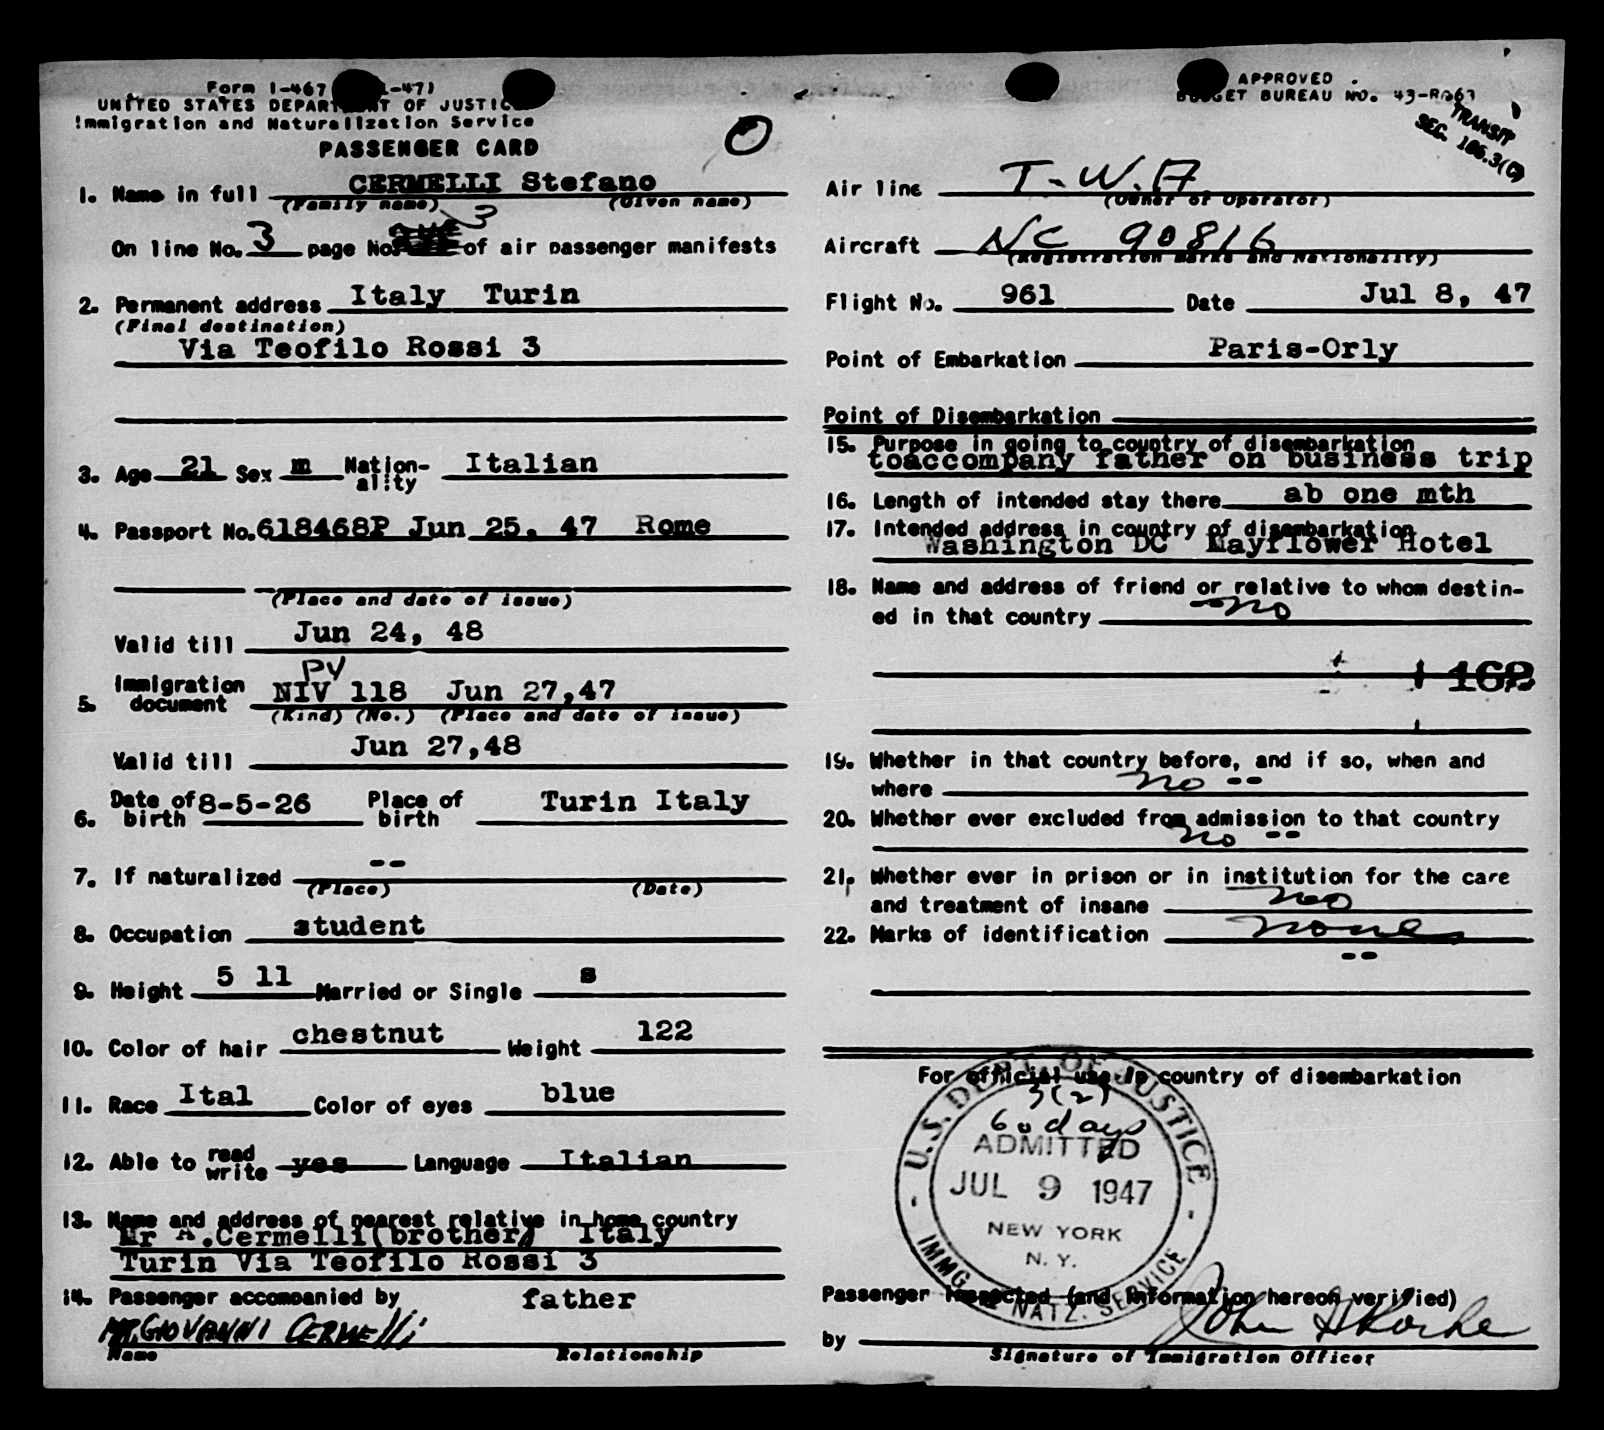 Form I-467 -47)
UNITED STATES DEPARTMENT OF JUSTICE
Immigration and Naturalization Service
PASSENGER CARD
O
1. Name in full CERMELLI Stefano
(Family name) (Given name)
On line No. 3 page No. 3 of air passenger manifests
2. Permanent address Italy Turin
(Final destination)
Via Teofilo Rossi 3
3. Age 21 Sex m Nation-ality Italian
4. Passport No. 618468P Jun 25. 47 Rome
(Place and date of issue)
Valid till Jun 24, 48
PV
5. Immigration document NIV 118 Jun 27,47
(Kind) (No.) (Place and date of issue)
Valid till Jun 27,48
6. Date of birth 8-5-26 Place of birth Turin Italy
7. If naturalized --
(Place) (Date)
8. Occupation student
9. Height 5 11 Married or Single s
10. Color of hair chestnut Weight 122
11. Race Ital Color of eyes blue
12. Able to read write yes Language Italian
13. Name and address of nearest relative in home country
Mr A.Cermelli(brother) Italy
Turin Via Teofilo Rossi 3
14. Passenger accompanied by father
MR. GIOVANNI CERMELLI
Name Relationship
APPROVED
BUDGET BUREAU NO. 43-R067
TRANSIT
SEC. 186.3(C)
Air line T.W.A.
(Owner or Operator)
Aircraft NC 90816
(Registration marks and Nationality)
Flight No. 961 Date Jul 8, 47
Point of Embarkation Paris-Orly
Point of Disembarkation
15. Purpose in going to country of disembarkation
toaccompany father on business trip
16. Length of intended stay there ab one mth
17. Intended address in country of disembarkation
Washington DC Mayflower Hotel
18. Name and address of friend or relative to whom destin-
ed in that country -- no
162
19. Whether in that country before, and if so, when and
where no --
20. Whether ever excluded from admission to that country
no --
21. Whether ever in prison or in institution for the care
and treatment of insane no
22. Marks of identification none
--
For official use in country of disembarkation
U.S. DEPT. OF JUSTICE
3(2)
60 days
ADMITTED
JUL 9 1947
NEW YORK
N. Y.
IMMG. & NATZ. SERVICE
Passenger inspected (and information hereon verified)
by John
Signature of Immigration Officer